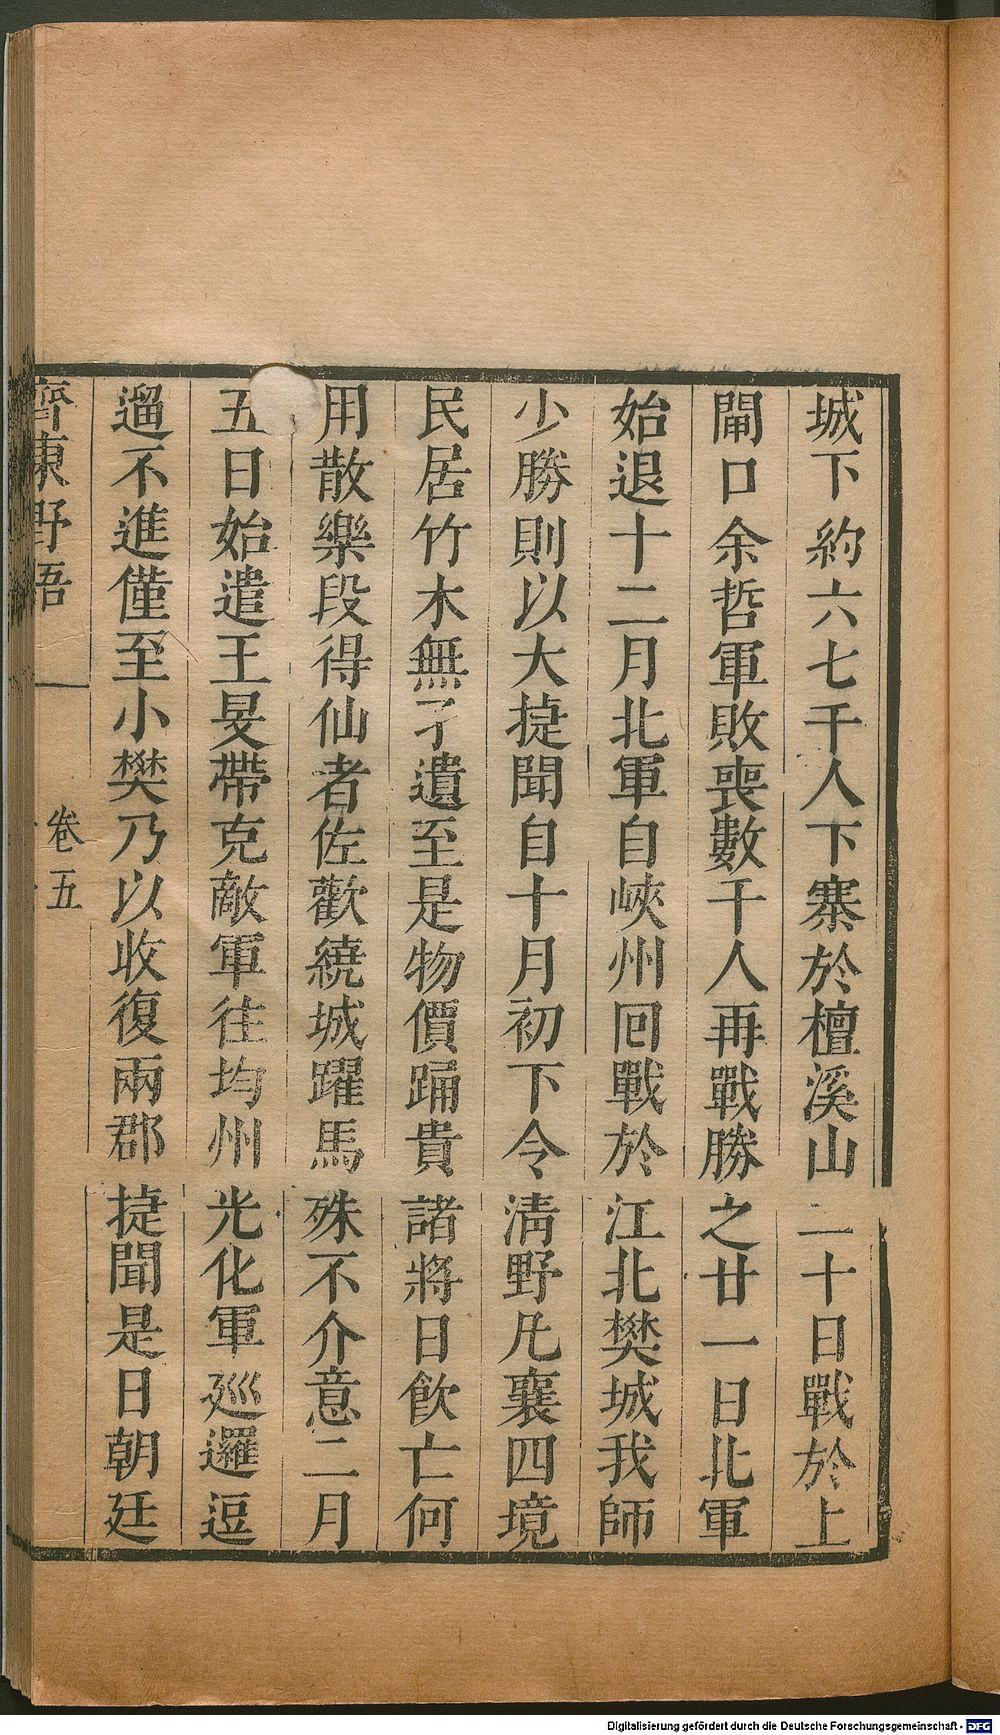 城下約六七千人下寨於檀溪山二十日戰於上
閘口余哲軍敗喪數千人再戰勝之廿一日北軍
始退十二月北軍自峽州回戰於江北樊城我師
少勝則以大捷聞自十月初下令清野凡襄四境
民居竹木無孑遺至是物價踊貴諸將日飲亡何
用散樂段得仙者佐歡繞城躍馬殊不介意二月
五日始遣王旻帶克敵軍往均州光化軍廵邏逗
遛不進僅至小樊乃以收復兩郡捷聞是日朝廷
齊東野語
卷五
Digitalisierung gefördert durch die Deutsche Forschungsgemeinschaft - DFG